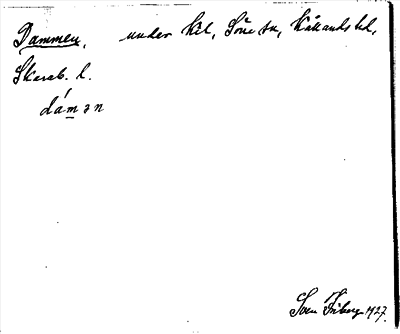 Dammen, under Kil, Söne sn, Kållands hd,
Skarab. l.
dámən
Sven Friberg 1927.